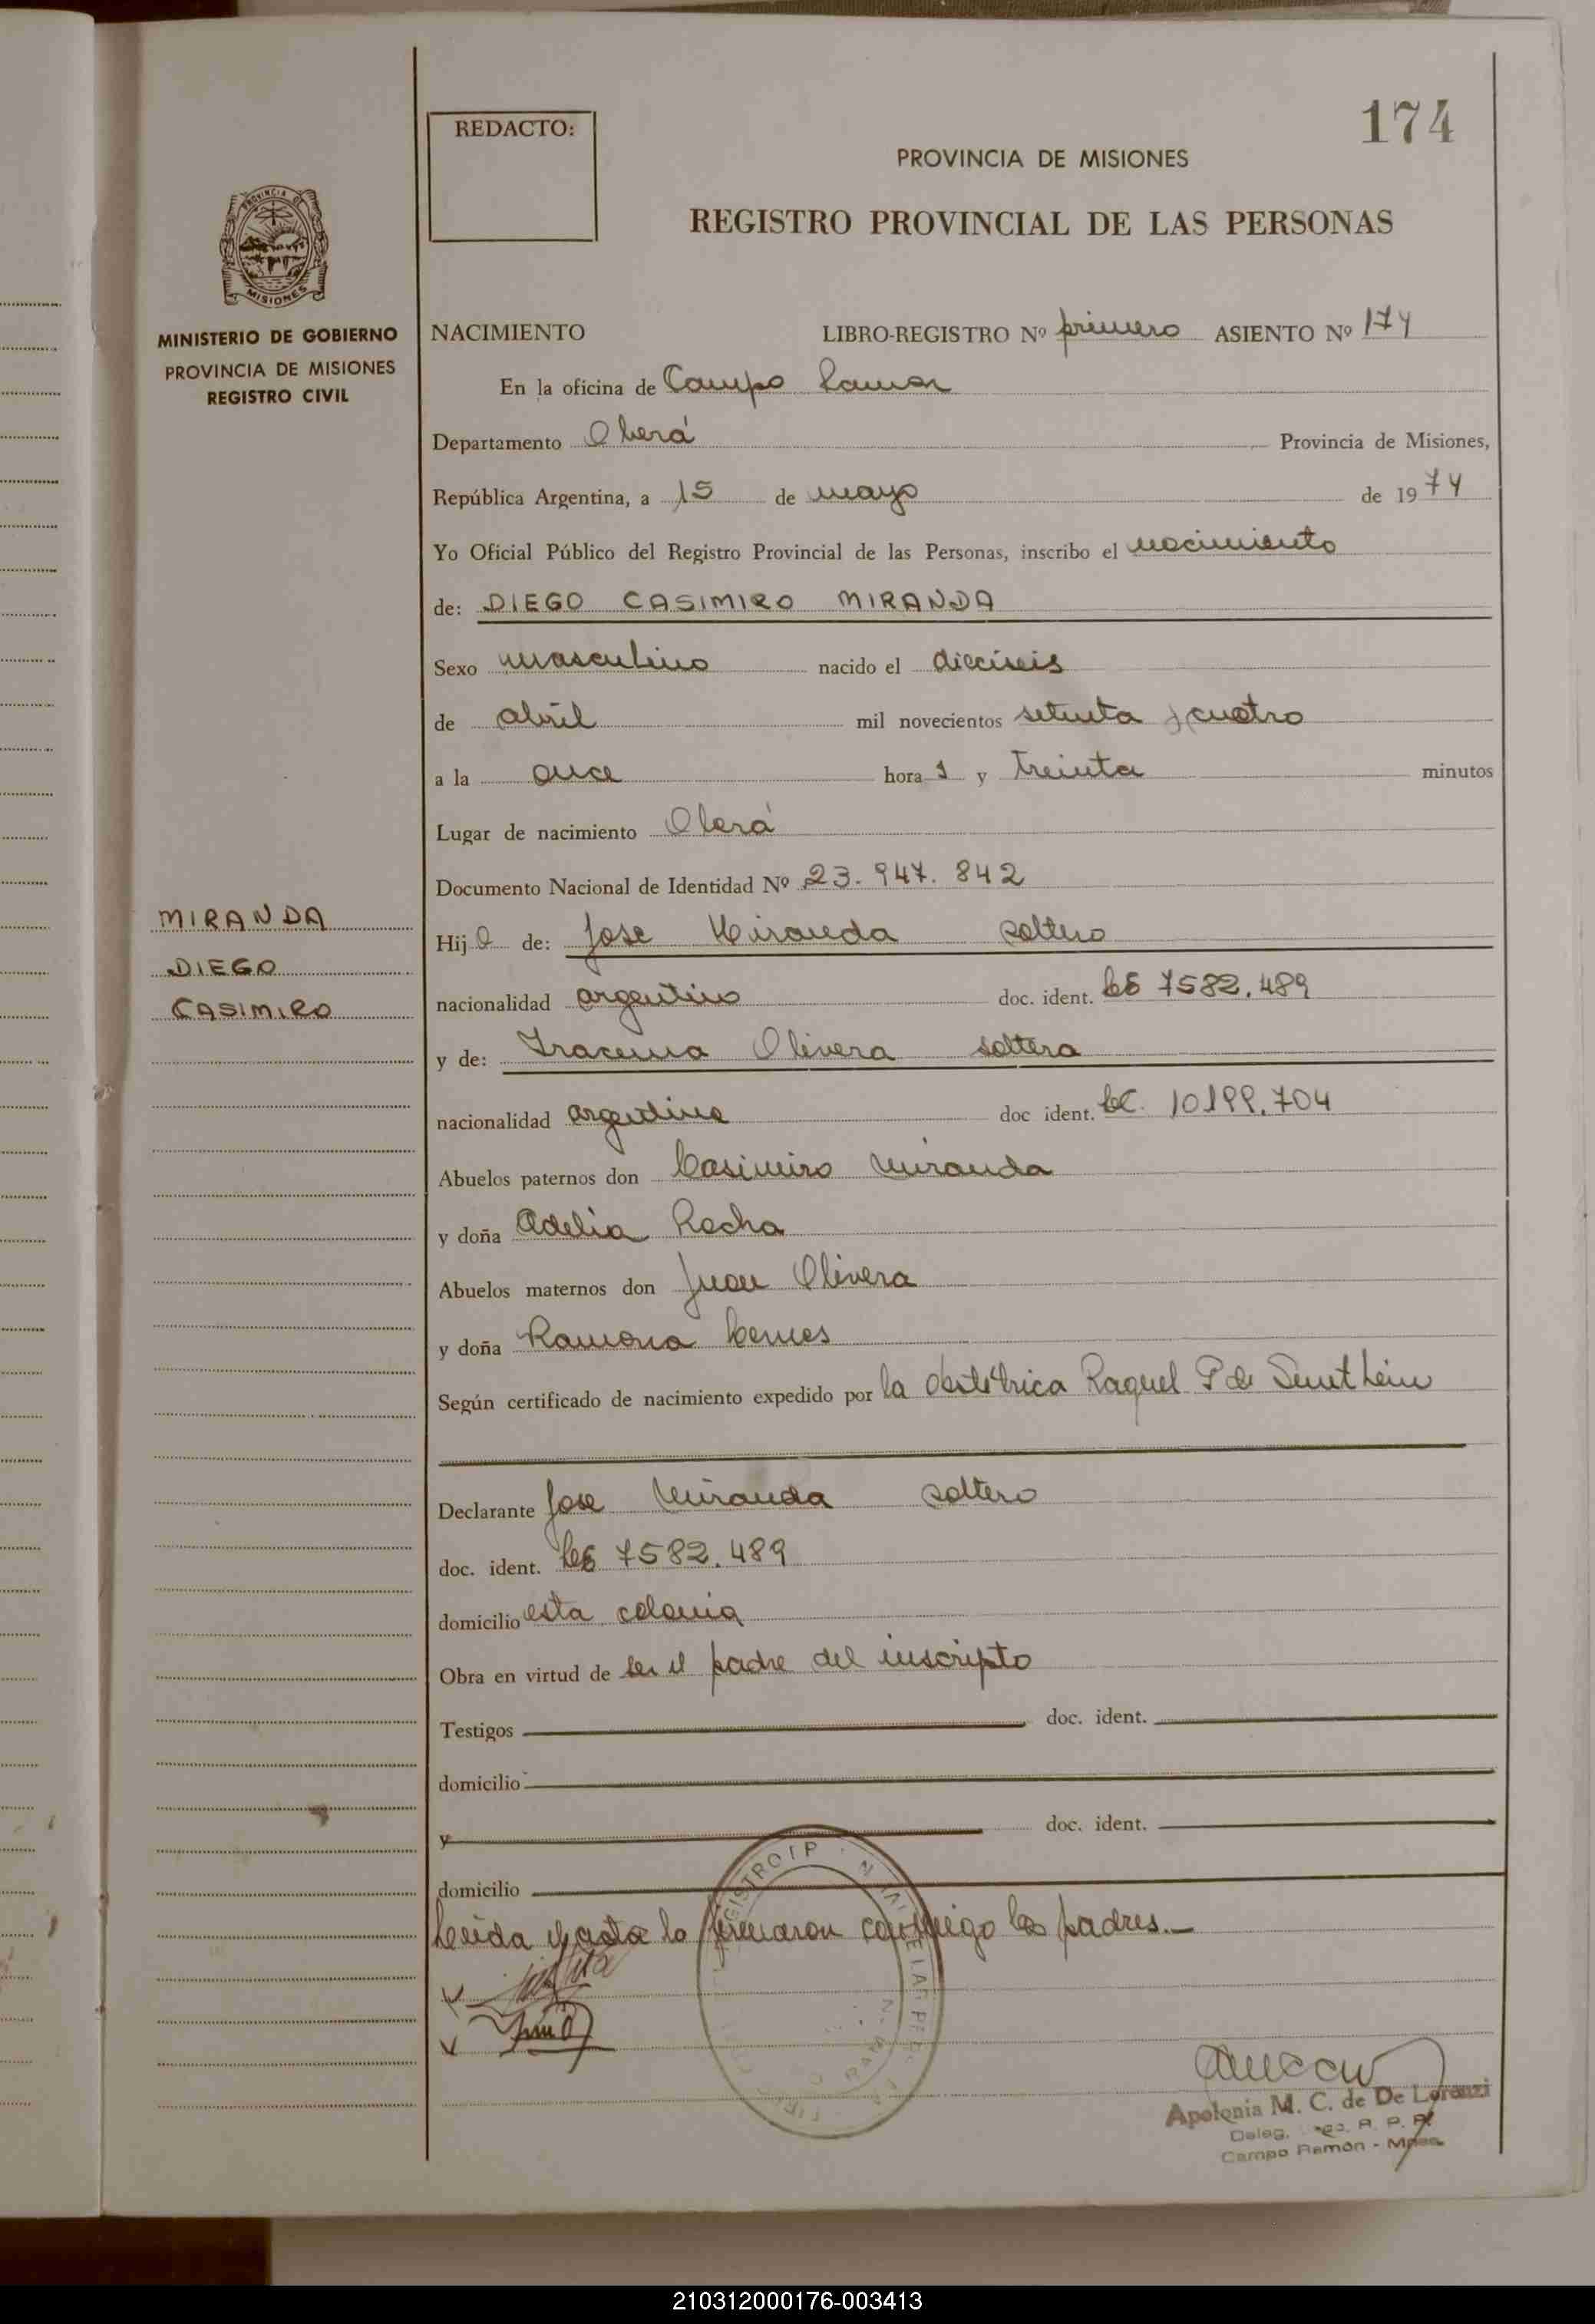 174
REDACTO:
PROVINCIA DE MISIONES
REGISTRO PROVINCIAL DE LAS PERSONAS
PROVINCIA DE
MISIONES
MINISTERIO DE GOBIERNO
PROVINCIA DE MISIONES
REGISTRO CIVIL
NACIMIENTO LIBRO-REGISTRO Nº primero ASIENTO Nº 174
En la oficina de Campo Ramon
Departamento Oberá Provincia de Misiones,
República Argentina, a 15 de mayo de 1974
Yo Oficial Público del Registro Provincial de las Personas, inscribo el nacimiento
de: DIEGO CASIMIRO MIRANDA
Sexo masculino nacido el dieciseis
de abril mil novecientos setenta y cuatro
a la once hora s y treinta minutos
Lugar de nacimiento Oberá
Documento Nacional de Identidad Nº 23.947.842
MIRANDA
DIEGO
CASIMIRO
Hijo de: Jose Miranda soltero
nacionalidad argentino doc. ident. 7582.489
y de: Iracema Olivera soltera
nacionalidad argentina doc ident. LC. 10199.704
Abuelos paternos don Casimiro Miranda
y doña Adelia Rocha
Abuelos maternos don Juan Olivera
y doña Ramona
Según certificado de nacimiento expedido por la obstétrica Raquel P de
Declarante Jose Miranda soltero
doc. ident. 7582.489
domicilio esta colonia
Obra en virtud de ser el padre del inscripto
Testigos doc. ident.
domicilio
y doc. ident.
domicilio
Leida el acta la firmaron conmigo los padres.—
Apolonia M. C. de De Lorenzi
Deleg. R. P. P.
Campo Ramon - Mnes.
210312000176-003413